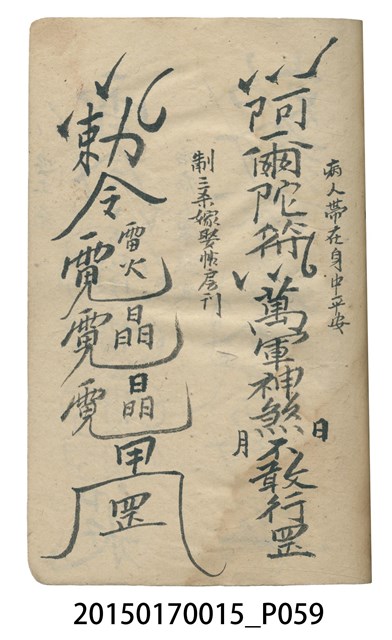 病人帶在身中平安
阿爾陀
萬軍神煞不敢行罡
日
月
制三煞嫁娶帳房刊
勅令
雷火
晶
晶
甲
罡
20150170015_P059